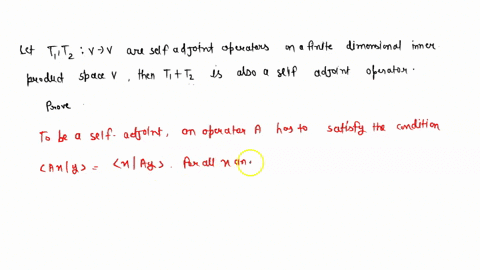 Let T₁,T₂ : V→V are self adjoint operators on a finite dimensional inner
product space V, then T₁+T₂ is also a self adjoint operator.
Prove
To be a self-adjoint, an operator A has to satisfy the condition
<Ax|y> = <x|Ay>. For all x an.